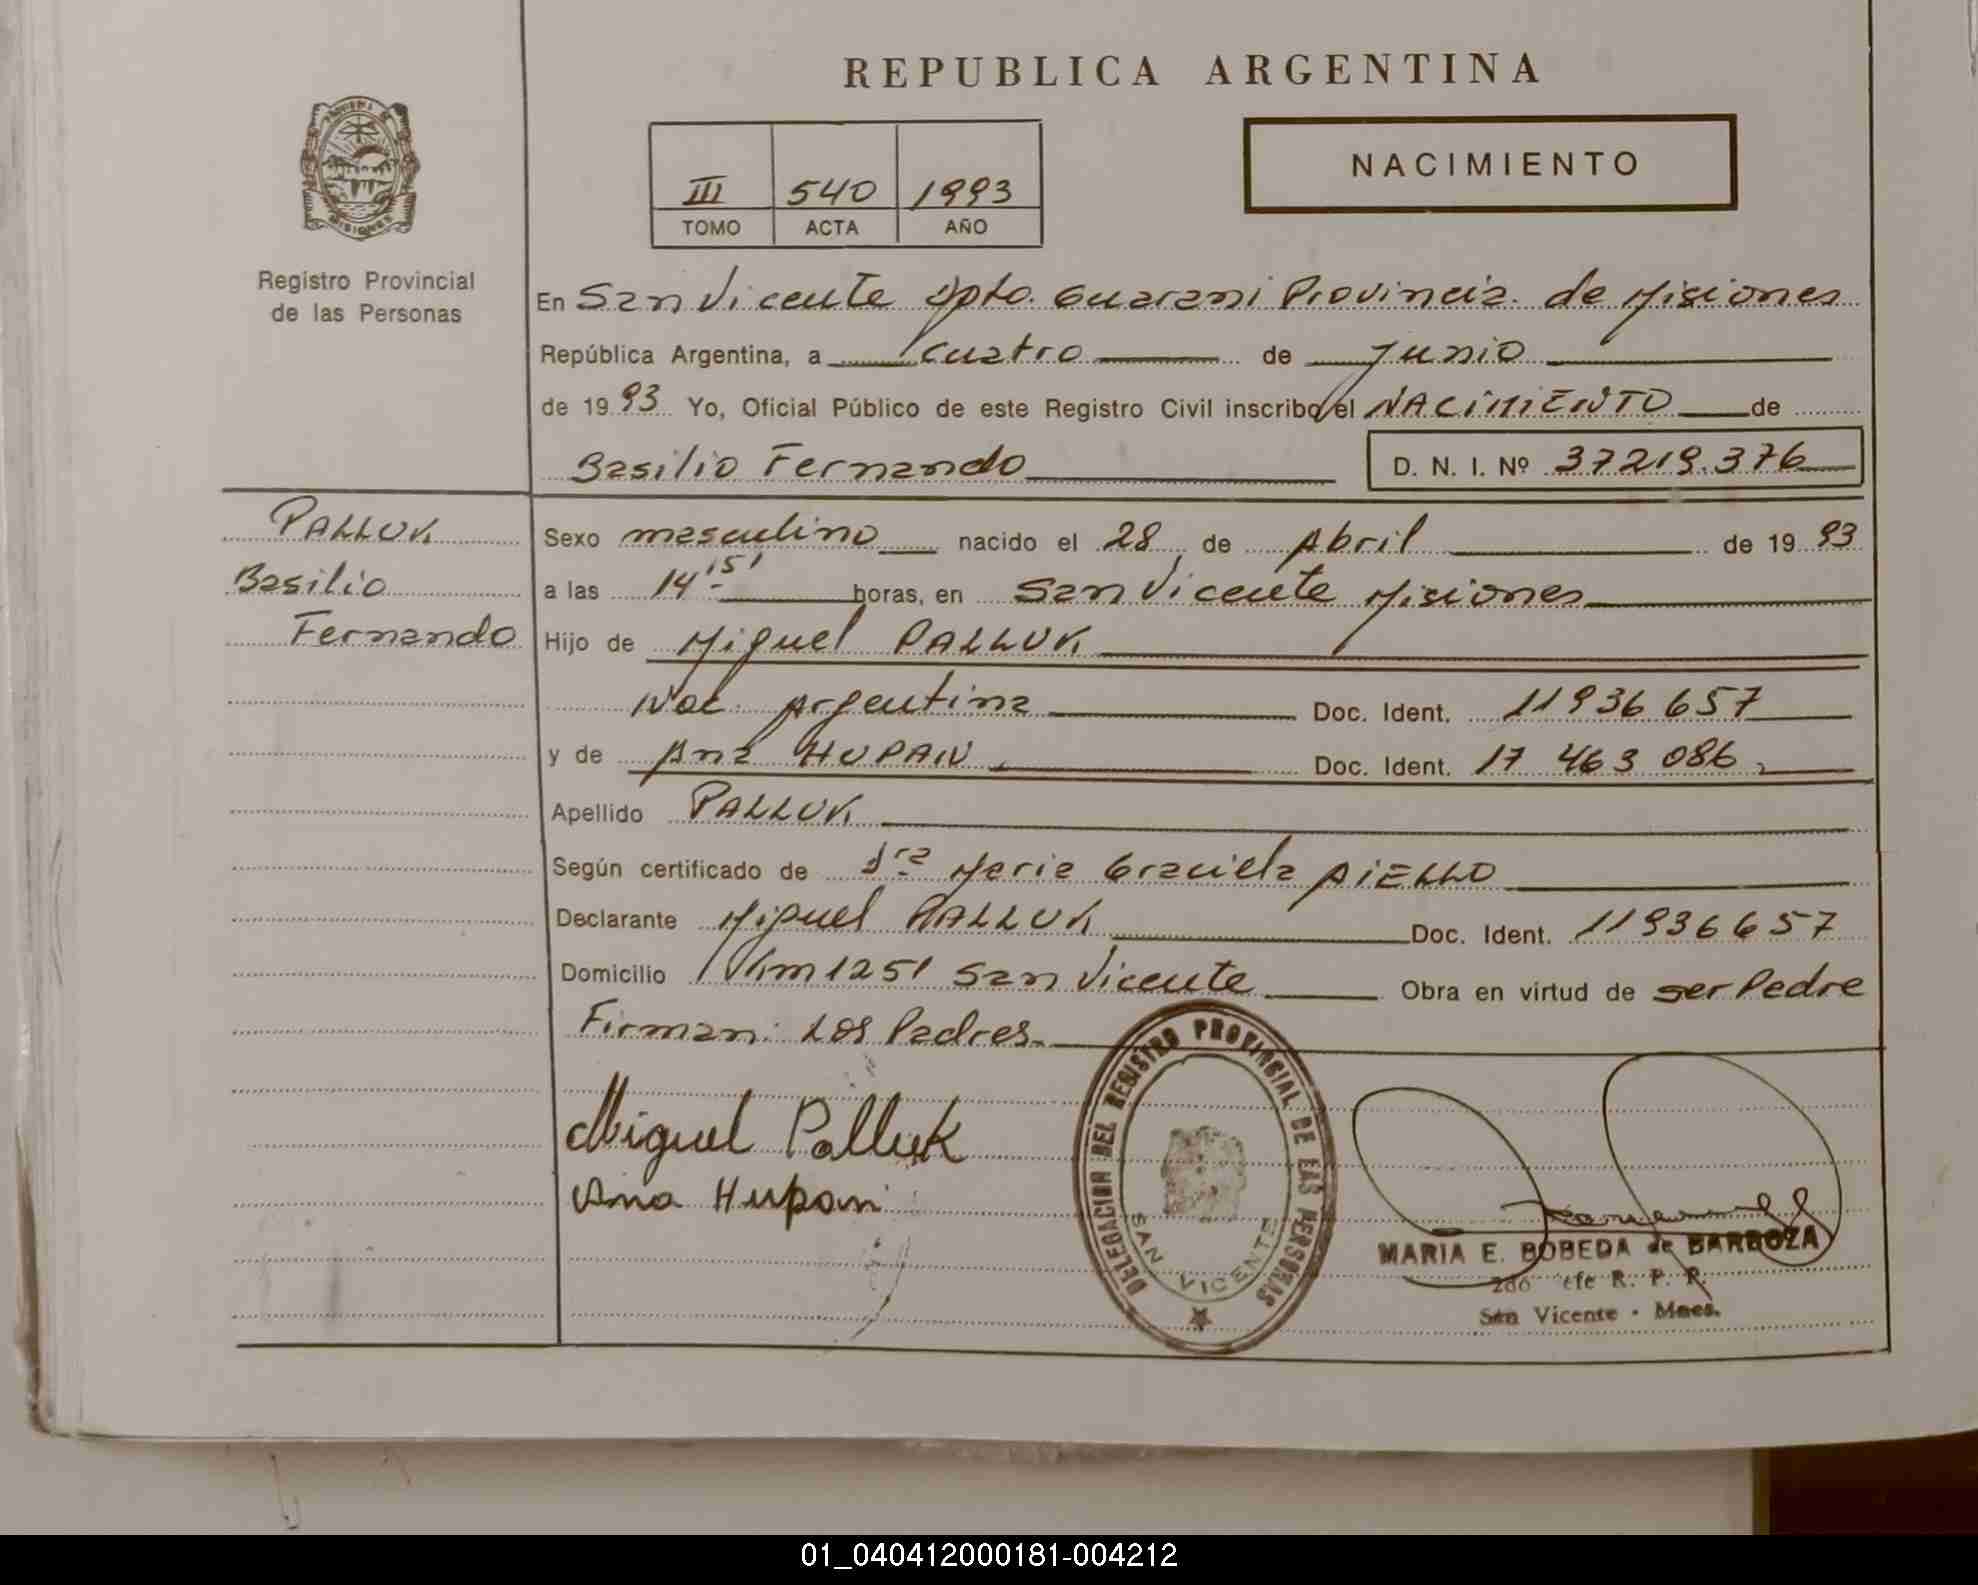 REPUBLICA ARGENTINA
MISIONES
Registro Provincial
de las Personas
III 540 1993
TOMO ACTA AÑO
NACIMIENTO
En San Vicente Dpto. Guarani Provincia de Misiones
República Argentina, a cuatro de Junio
de 1993 Yo, Oficial Público de este Registro Civil inscribo el NACIMIENTO de
Basilio Fernando D. N. I. Nº 37219.376
PALLUK
Basilio
Fernando
Sexo masculino nacido el 28 de Abril de 1993
a las 14'15' horas, en San Vicente Misiones
Hijo de Miguel PALLUK
Nac. Argentina Doc. Ident. 11936657
y de Ana HUPAN Doc. Ident. 17 463 086
Apellido PALLUK
Según certificado de Dra Maria Graciela AiELLO
Declarante Miguel PALLUK Doc. Ident. 11936657
Domicilio Km 1251 San Vicente Obra en virtud de ser Padre
Firman: Los Padres.
Miguel Palluk
Ana Hupan
DELEGACION DEL REGISTRO PROVINCIAL DE LAS PERSONAS
SAN VICENTE
MARIA E. BOBEDA de BARBOZA
2do efe R. P. P.
San Vicente - Mnes.
01_040412000181-004212